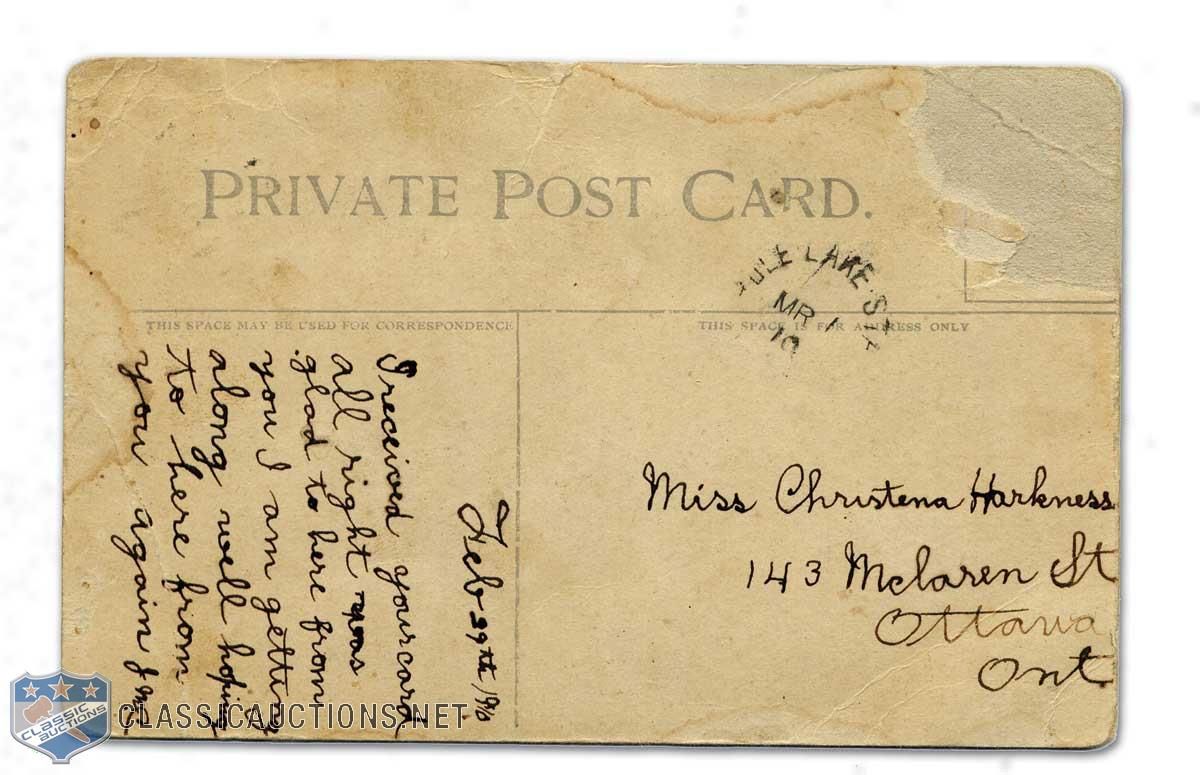 PRIVATE POST CARD.
ULE LAKE. STA
MR 1
10
THIS SPACE MAY BE USED FOR CORRESPONDENCE
THIS SPACE IS FOR ADDRESS ONLY
Feb 29th 1910
I received your card
all right was
glad to here from
you I am getting
along well hoping
to here from
you again
Miss Christena Harkness
143 Mclaren St
Ottawa
Ont
CLASSIC
AUCTIONS
CLASSICAUCTIONS.NET